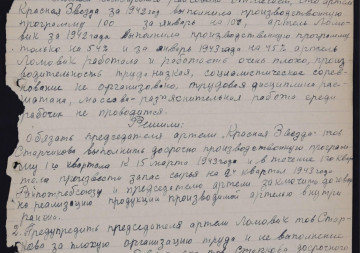 Красная Звезда за 1942 год выполнила производственную
программу 100 за январь на 15% артель Ломо-
вик за 1942 года выполнила производственную программу
только на 54% и за январь 1943 года на 45% артель
Ломовик работала и работает очень плохо, произ-
водительность труда низкая, социалистическое сорев-
нование не организовано, трудовая дисциплина рас-
шатана, массово-раз'яснительная работа среди
рабочих не проводится.
Решили:
Обязать председателя артели "Красная Звезда" тов
выполнить досрочно производственную програм
му I го квартала к 15 марта 1943 года и в течение I го квар
тала произвести запас сырья на 2й квартал 1943 года
и председателю артели заключить договор
на реализацию продукции производимой артелью внутри
района.
2. Предупредить председателя артели Ломовик тов
за плохую организацию труда и не выполнение
досрочного